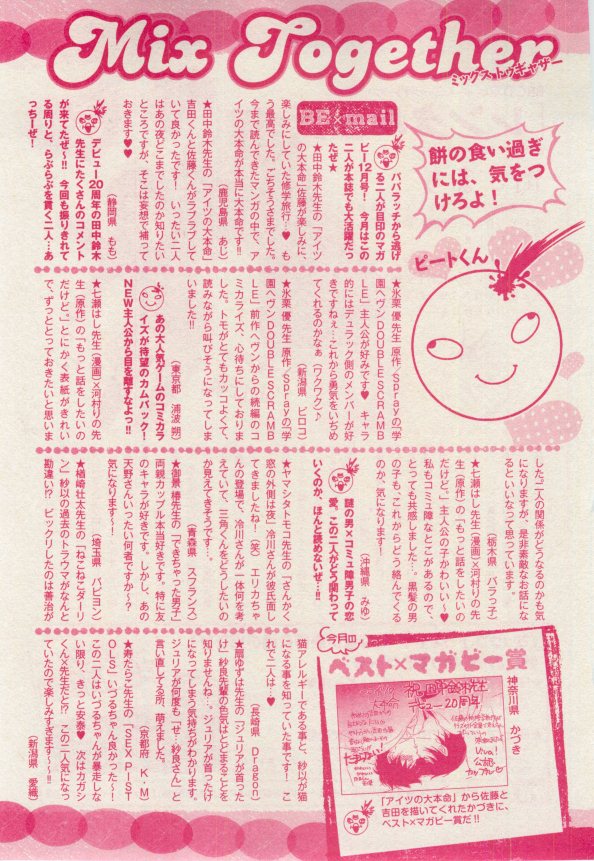 Mix Together
ミックス トゥギャザー
餅の食い過ぎ
には、気をつ
けろよ!
ビートくん
BE×mail
パパラッチから逃げ
る二人が目印のマガ
ビー12月号! 今月はこの
二人が本誌でも大活躍だっ
たぜ★
★田中鈴木先生の「アイツ
の大本命」佐藤が楽しみに、
楽しみにしていた修学旅行♥ も
う最高でした。ごちそうさまでした。
今まで読んできたマンガの中で、ア
イツの大本命が本当に大本命です!!
(鹿児島県 あじ)
★田中鈴木先生の「アイツの大本命」
吉田くんと佐藤くんがラブラブして
いて良かったです! いったい二人
はあの夜どこまでしたのか知りたい
ところですが、そこは妄想で補って
おきます♥♥
(静岡県 もも)
デビュー20周年の田中鈴木
先生にたくさんのコメント
が来てたぜ〜!! 今回も振りきれて
る周りと、らぶらぶを貫く二人…あ
っちーぜ!
★氷栗 優先生 原作/Sprayの「学
園ヘヴンDOUBLE SCRAMB
LE」主人公が好みです♥ キャラ
的にはデュラック側のメンバーが好
きですねぇ…これから勇気をいぢめ
てくれるのかなぁ(ワクワク)♪
(新潟県 ピロコ)
★氷栗 優先生 原作/Sprayの「学
園ヘヴンDOUBLE SCRAMB
LE」前作ヘヴンからの続編のコ
ミカライズ、心待ちにしておりま
した。トモがとてもカッコよくて、
読みながら叫びそうになってしま
いました!!
(東京都 浦波 朔)
あの大人気ゲームのコミカラ
イズが待望のカムバック!
NEW主人公から目を離すなよっ!!
★七瀬はし先生(漫画)×河村りの先
生(原作)の「もっと話をしたいの
だけど。」とにかく表紙がきれい
で、ずっととっておきたいと思いま
した。二人の関係がどうなるのかも気
になりますが、是非素敵なお話にな
るといいなって思っています。
(栃木県 バラっ子)
★七瀬はし先生(漫画)×河村りの先
生(原作)の「もっと話をしたいの
だけど。」主人公の子かわいい〜♥
私もコミュ障なとこがあるので、
とっても共感しました…黒髪の男
の子も、これからどう絡んでくる
のか、気になります!
(沖縄県 みゆ)
謎の男×コミュ障男子の恋
愛、この二人がどう関わって
いくのか、ほんと読めないぜ…!!
★ヤマシタトモコ先生の「さんかく
窓の外側は夜」冷川さんが彼氏面し
てきましたね!(笑) エリカちゃ
んの登場で、冷川さんが一体何を考
えていて、三角くんをどうしたいの
か見えてきそうです…
(青森県 スフランス)
★御景 椿先生の「できちゃった男子」
両親カップル本当好きです。特に友
のキャラが好きです。しかし、あの
天野さんいったい何者ですか〜?
気になります〜!
(埼玉県 パピヨン)
★楢崎壮太先生の「ねこねこダーリ
ン」紗以の過去のトラウマがなんと
勘違い!? ビックリしたのは善治が
猫アレルギーである事と、紗以が猫
になる事を知っていた事です! こ
れで二人は…♥
(長崎県 Dragon)
★扇ゆずは先生の「ジュリアが首った
け」紗良先輩の色気はとどまることを
知りませんね…。ジュリアが首ったけ
になってしまう気持ちがわかります。
ジュリアが何度も「せ・紗良さん」と
言い直してる所、萌えました。
(京都府 K・M)
★寿たらこ先生の「SEX PIST
OLS」いづるちゃん良かった〜!
この二人はいづるちゃんが暴走しな
い限り、きっと安泰♥ 次はカガシ
くん×先生だし!? この二人気になっ
ていたので楽しみすぎます〜〜!!
(新潟県 愛機)
今月の
ベスト×マガビー賞
神奈川県 かづき
アイツの
大本命
祝♡田中鈴木先生
デビュー20周年
Viva!
公認
カップル♡
「アイツの大本命」から佐藤と
吉田を描いてくれたかづきに、
ベスト×マガビー賞だ!!